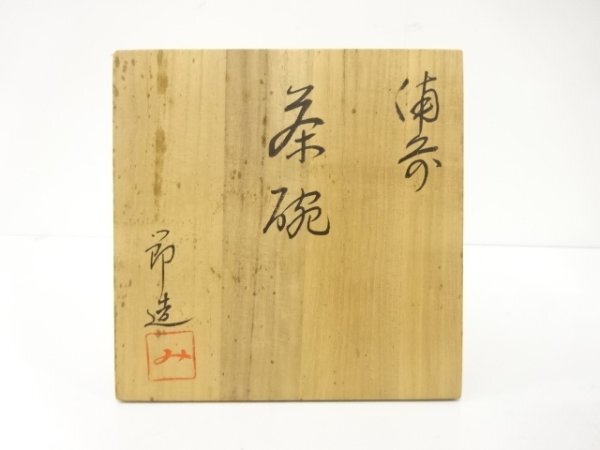 備前
茶碗
節造
み